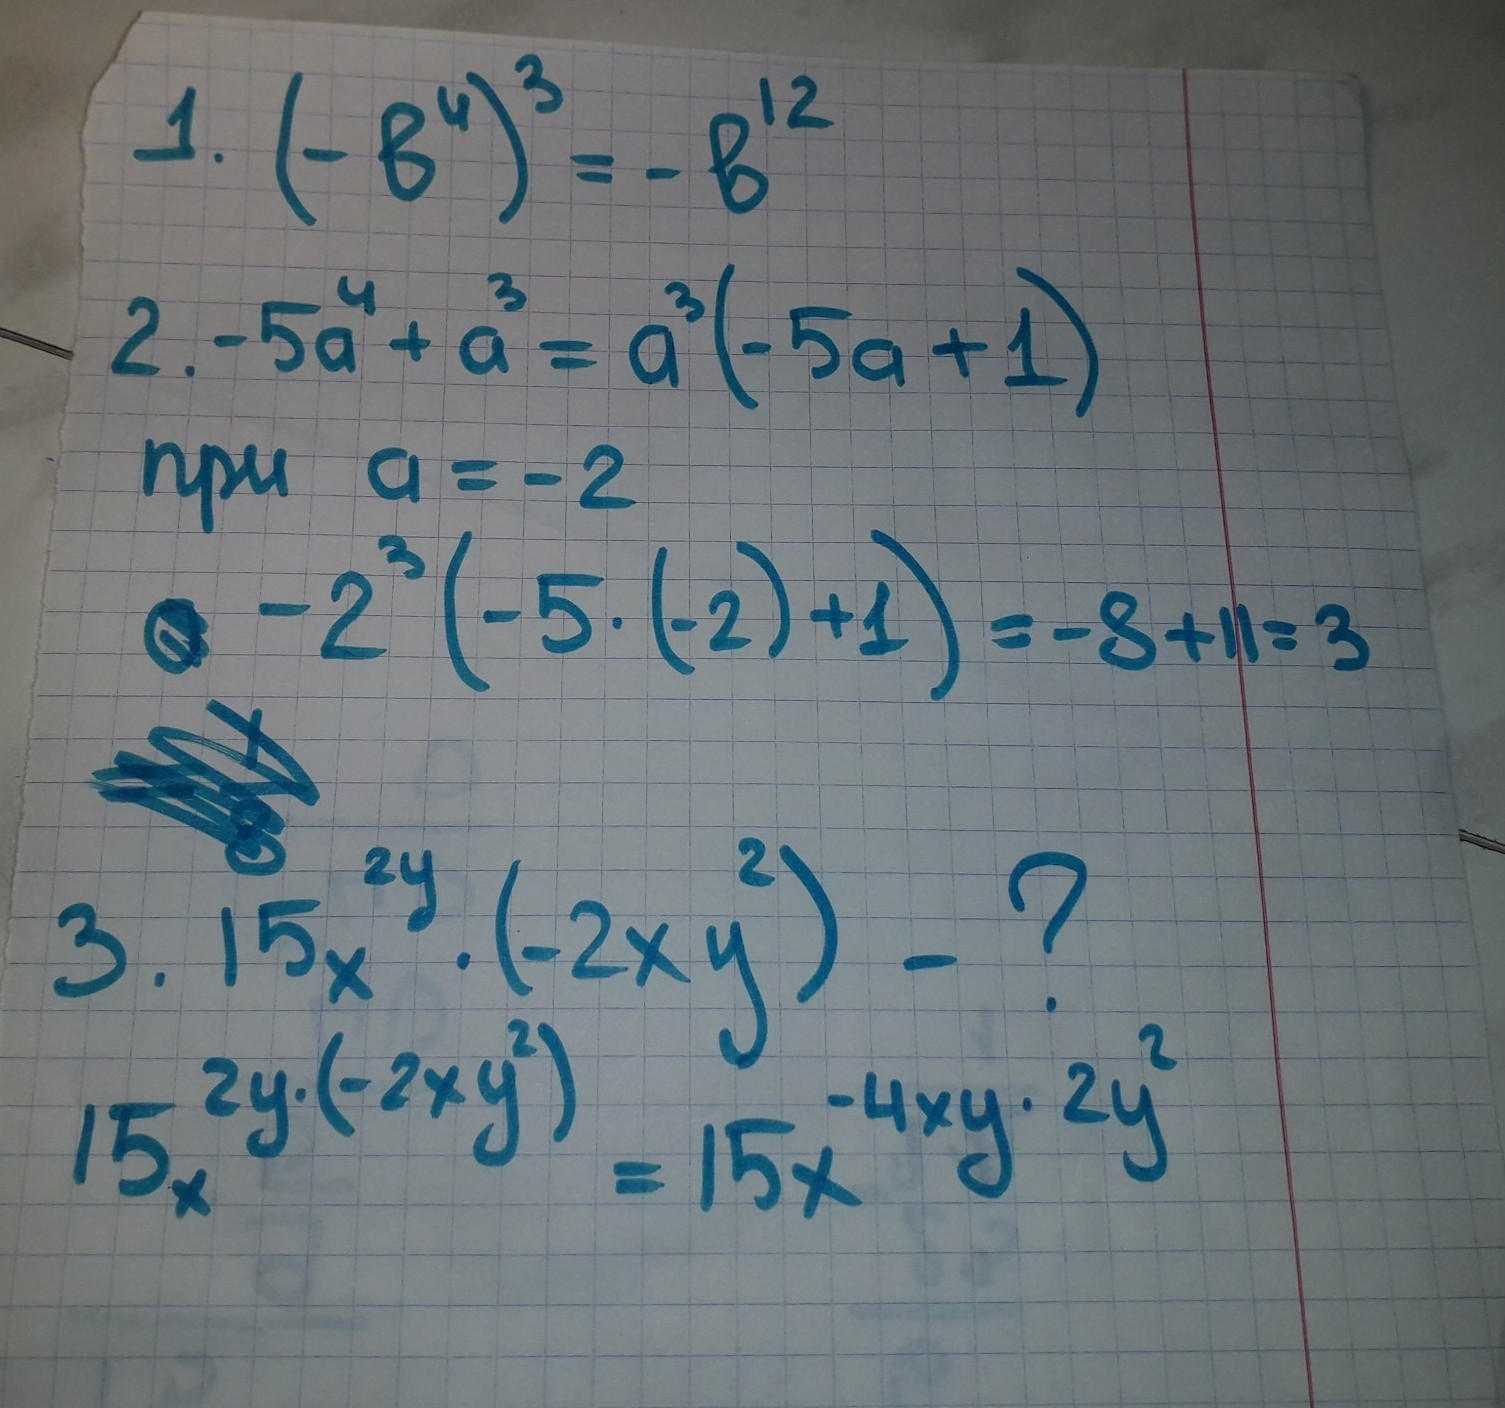 1. (-b⁴)³ = -b¹²
2. -5a⁴ + a³ = a³(-5a + 1)
при a = -2
-2³(-5·(-2)+1) = -8+11=3
3. 15x²ʸ·(-2xy²) - ?
15x^(2y·(-2xy²)) = 15x^(-4xy·2y²)